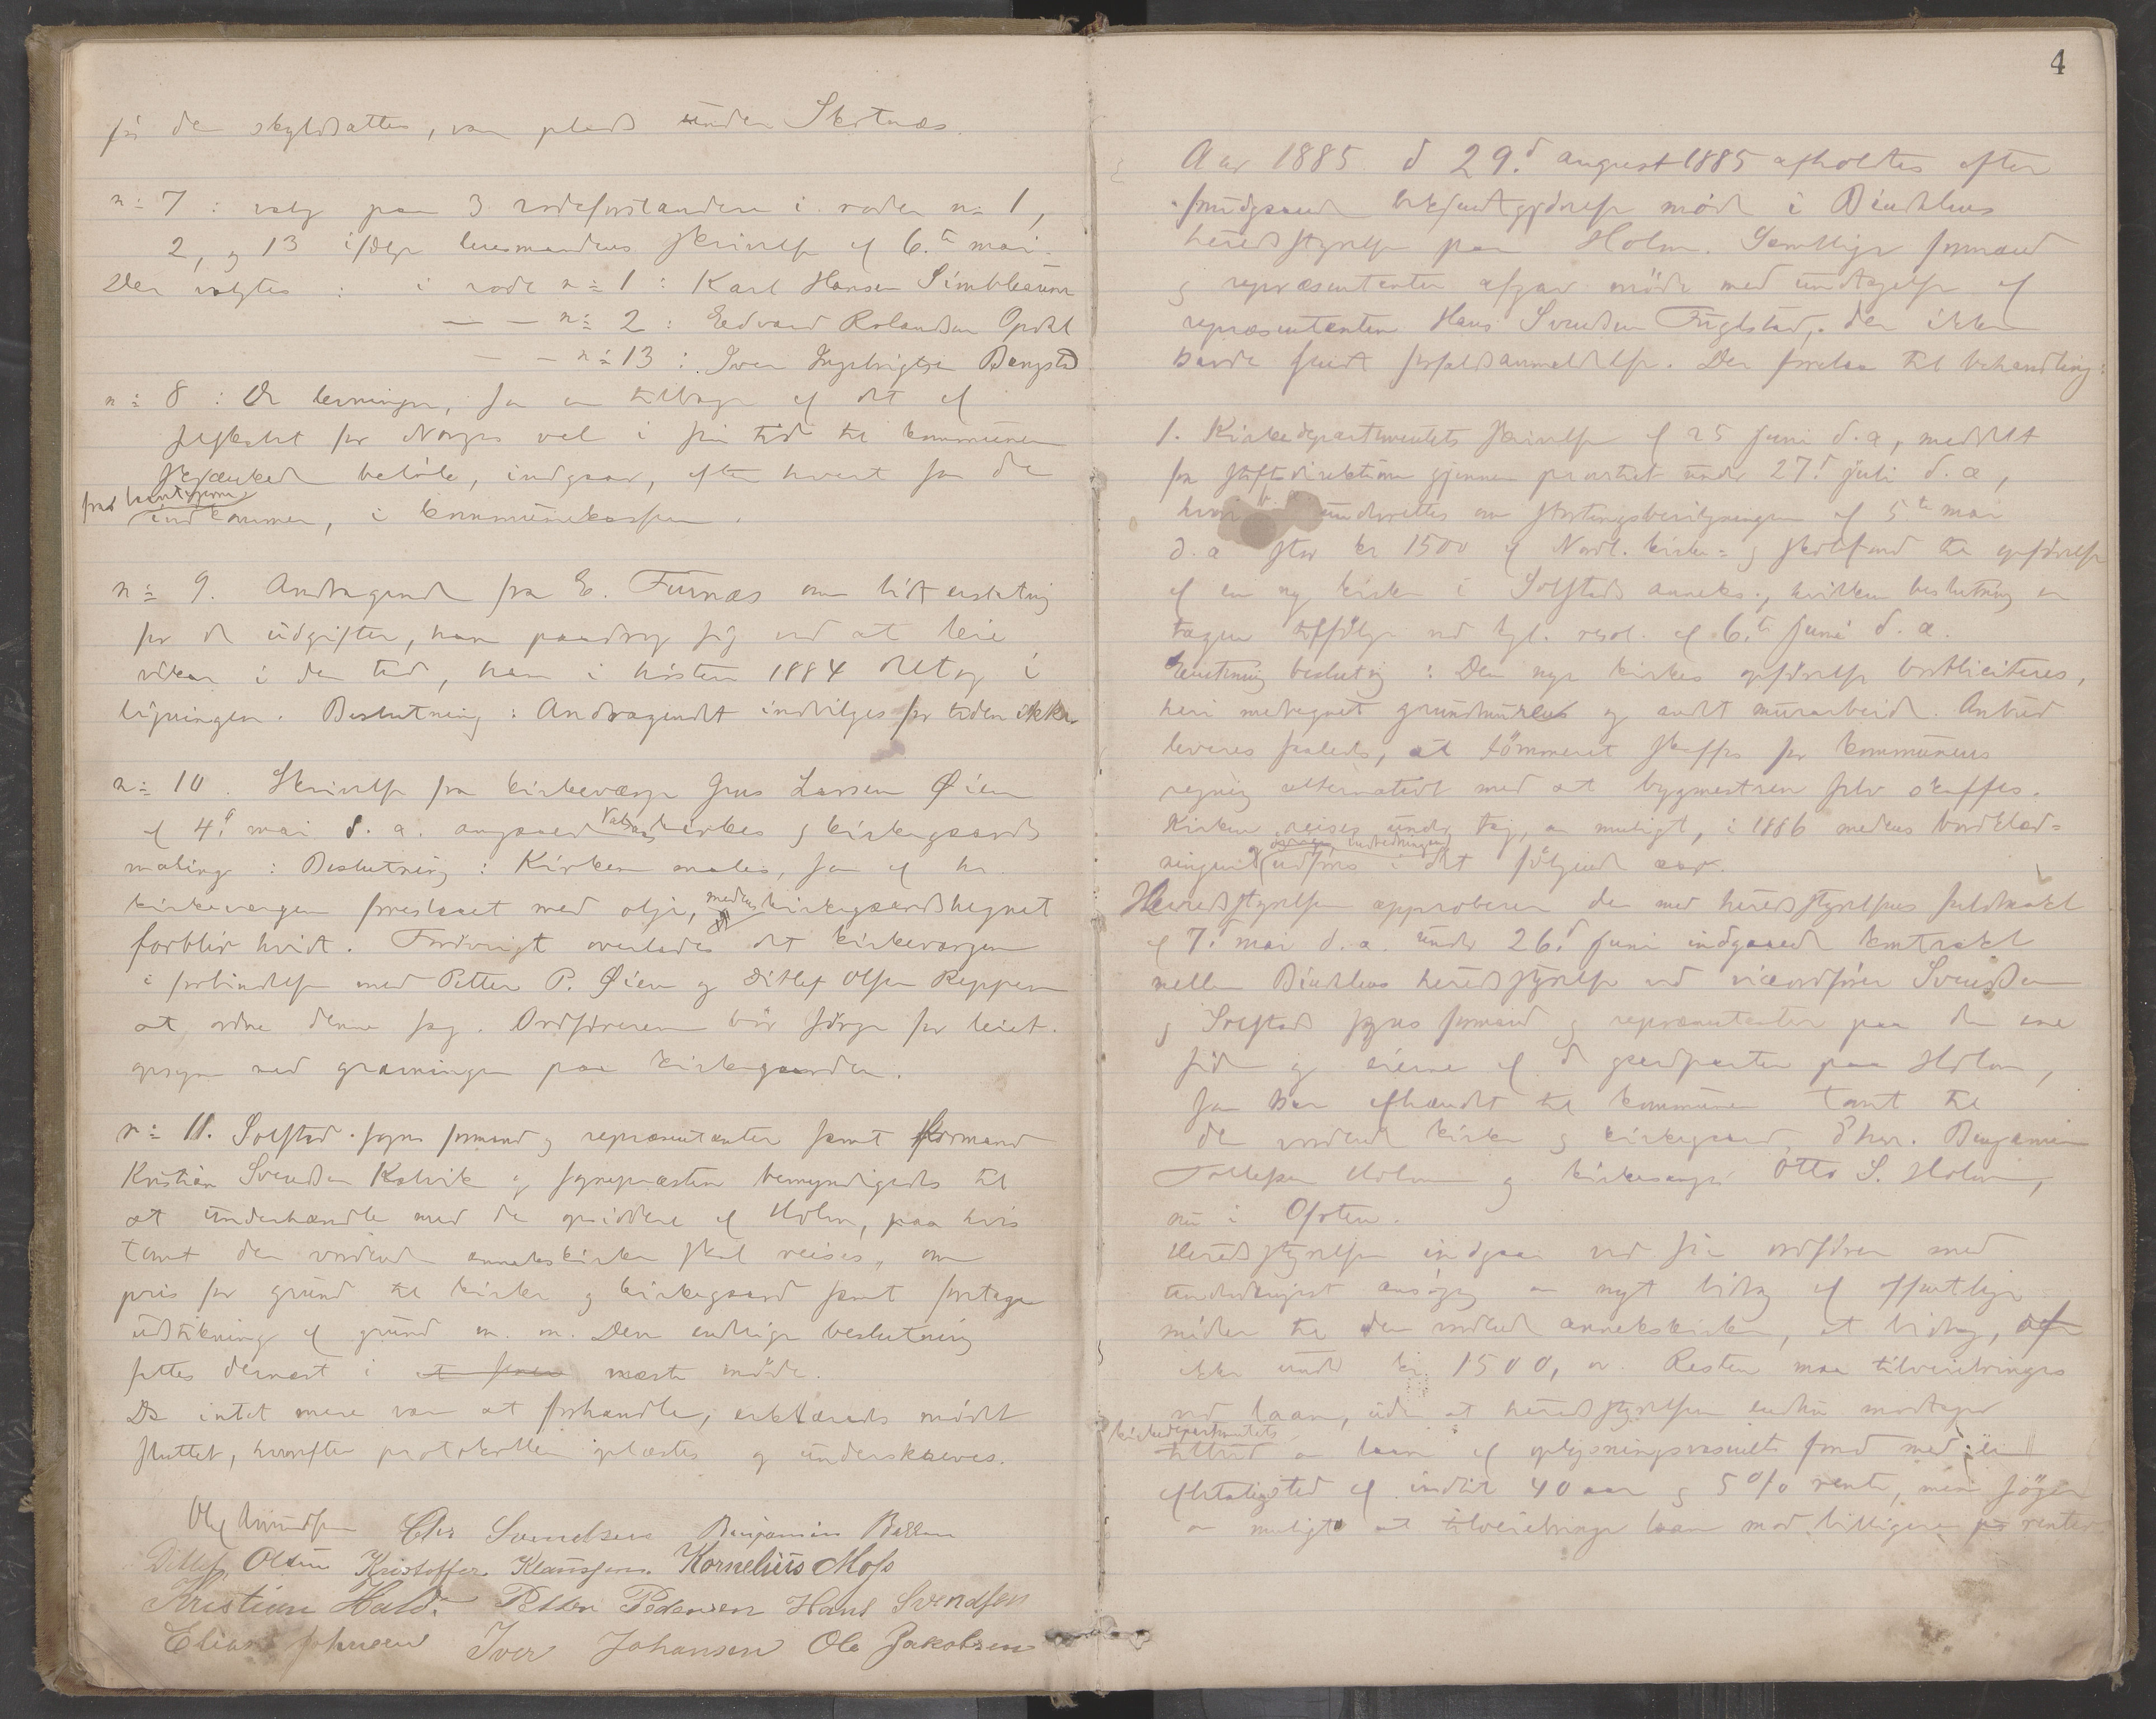 før den skyldsattes, var plads under Skotnæs.
n= 7 : valg paa 3 rodeforstandere i roden n= 1,
2, og 13 ifølge lensmandens skrivelse af 6.te mai.
Der valgtes : i rode n= 1 : Karl Hansen Simblesund
— — n= 2 : Edvard Rolandsen Opdal
— — n= 13 : Iver Ingebrigtsen Bangstad
n= 8 : De levninger, som er tilbage af det af
selskabet for Norges vel i sin tid til kommunen
skjænkede beløb, indgaar, efter hvert som de
indkommer, i kommunekassen.
n= 9. Andragende fra E. Furnæs om lidt erstatning
for de udgifter, han paadrog sig ved at leie
vikar i den tid, han i høsten 1884 deltog i
ligningen. Beslutning : Andragendet indvilges for tiden ikke
n= 10. Skrivelse fra kirkeværge Jens Larsen Øien
af 4.d mai d. a. angaaende kirkes og kirkegaards
maling : Beslutning : Kirken males, som af hr.
kirkevergen foreslaaet med olje, medens kirkegaardshegnet
forblir hvidt. Forøvrigt overlades det kirkevergen
i forbindelse med Petter P. Øien og Ditlef Olsen Reppen
at ordne denne sag. Ordføreren bør sørge for leiet
opsyn med gravningen paa kirkegaarden.
n= 11. Solstad sogns formænd og repræsentanter samt formand
Kristian Svendsen Kalvik og sognepræsten bemyndigedes til
at underhandle med de opsiddere af Holm, paa hvis
tomt den vordende annekskirke skal reises, om
pris for grund til kirke og kirkegaard samt foretage
udstikning af grund m. m. Den endelige beslutning
fattes dernæst i næste møde.
Da intet mere var at forhandle, erklæredes mødet
sluttet, hvorefter protokollen oplæstes og underskreves.
Ole Amundsen Chr Svendsen Benjamin Bekken
Ditlef Olsen Kristoffer Klaussen. Kornelius Moss
Kristian Hald. Petter Pedersen Hans Svendsen
Elias Johnsen Iver Johansen Ole Jakobsen
4
Aar 1885 d 29.d august 1885 afholdtes efter
forudgaaende bekjendtgjørelse møde i Bindalens
heredsstyrelse paa Holm. Samtlige formænd
og repræsentanter afgav møde med undtagelse af
repræsentanten Hans Svendsen Fuglstad, der ikke
havde sendt forfaldsanmeldelse. Der forelaa til behandling:
1. Kirkedepartementets skrivelse af 25 juni d. a., meddelt
fra stiftsdirektionen gjennem provstiet under 27.d juli d. a,
hvori underrettes om stortingsbevilgningen af 5.te mai
d. a stor kr 1500 af Nordl. kirke- og skolefond til opførelse
af en ny kirke i Solstads anneks, hvilken beslutning er
tagen tilfølge ved kgl. resol. af 6.te juni d. a.
beslutning : Den nye kirkes opførelse bortliciteres,
heri medregnet grundmuren og andet murarbeide. Anbud
leveres saaledes, at tømmeret skaffes for kommunens
regning alternativt med at bygmesteren selv skaffer.
Kirken reises under tag, om muligt, i 1886 medens bordklæd-
ningen udføres i det følgende aar.
Heredsstyrelsen approberer den med heredsstyrelsens fuldmagt
af 7.d mai d. a. under 26.d juni indgaaede kontrakt
mellem Bindalens heredsstyrelse ved viceordfører Svendsen
og Solstad sogns formænd og repræsentanter paa den ene
side og eierne af de gaardparter paa Holm,
som har afhændt til kommunen tomt til
den vordende kirke og kirkegaard, dhrr. Benjamin
Tollefsen Holm og kirkesanger Otto S. Holm,
nu i Ofoten.
Heredsstyrelsen indgaar ved sin ordfører med
underdanigst ansøgning om nyt bidrag af offentlige
midler til den vordende annekskirke, et bidrag,
ikke under kr. 1500, Resten maa tilveiebringes
ved laan, uden at heredsstyrelsen endnu modtager
kirkedepartementets
tilbud om laan af oplysningsvæsenets fond med en
afbetalingstid af indtil 40 aar og 5% rente, men søger
om muligt at tilveiebringe laan mod billigere renter